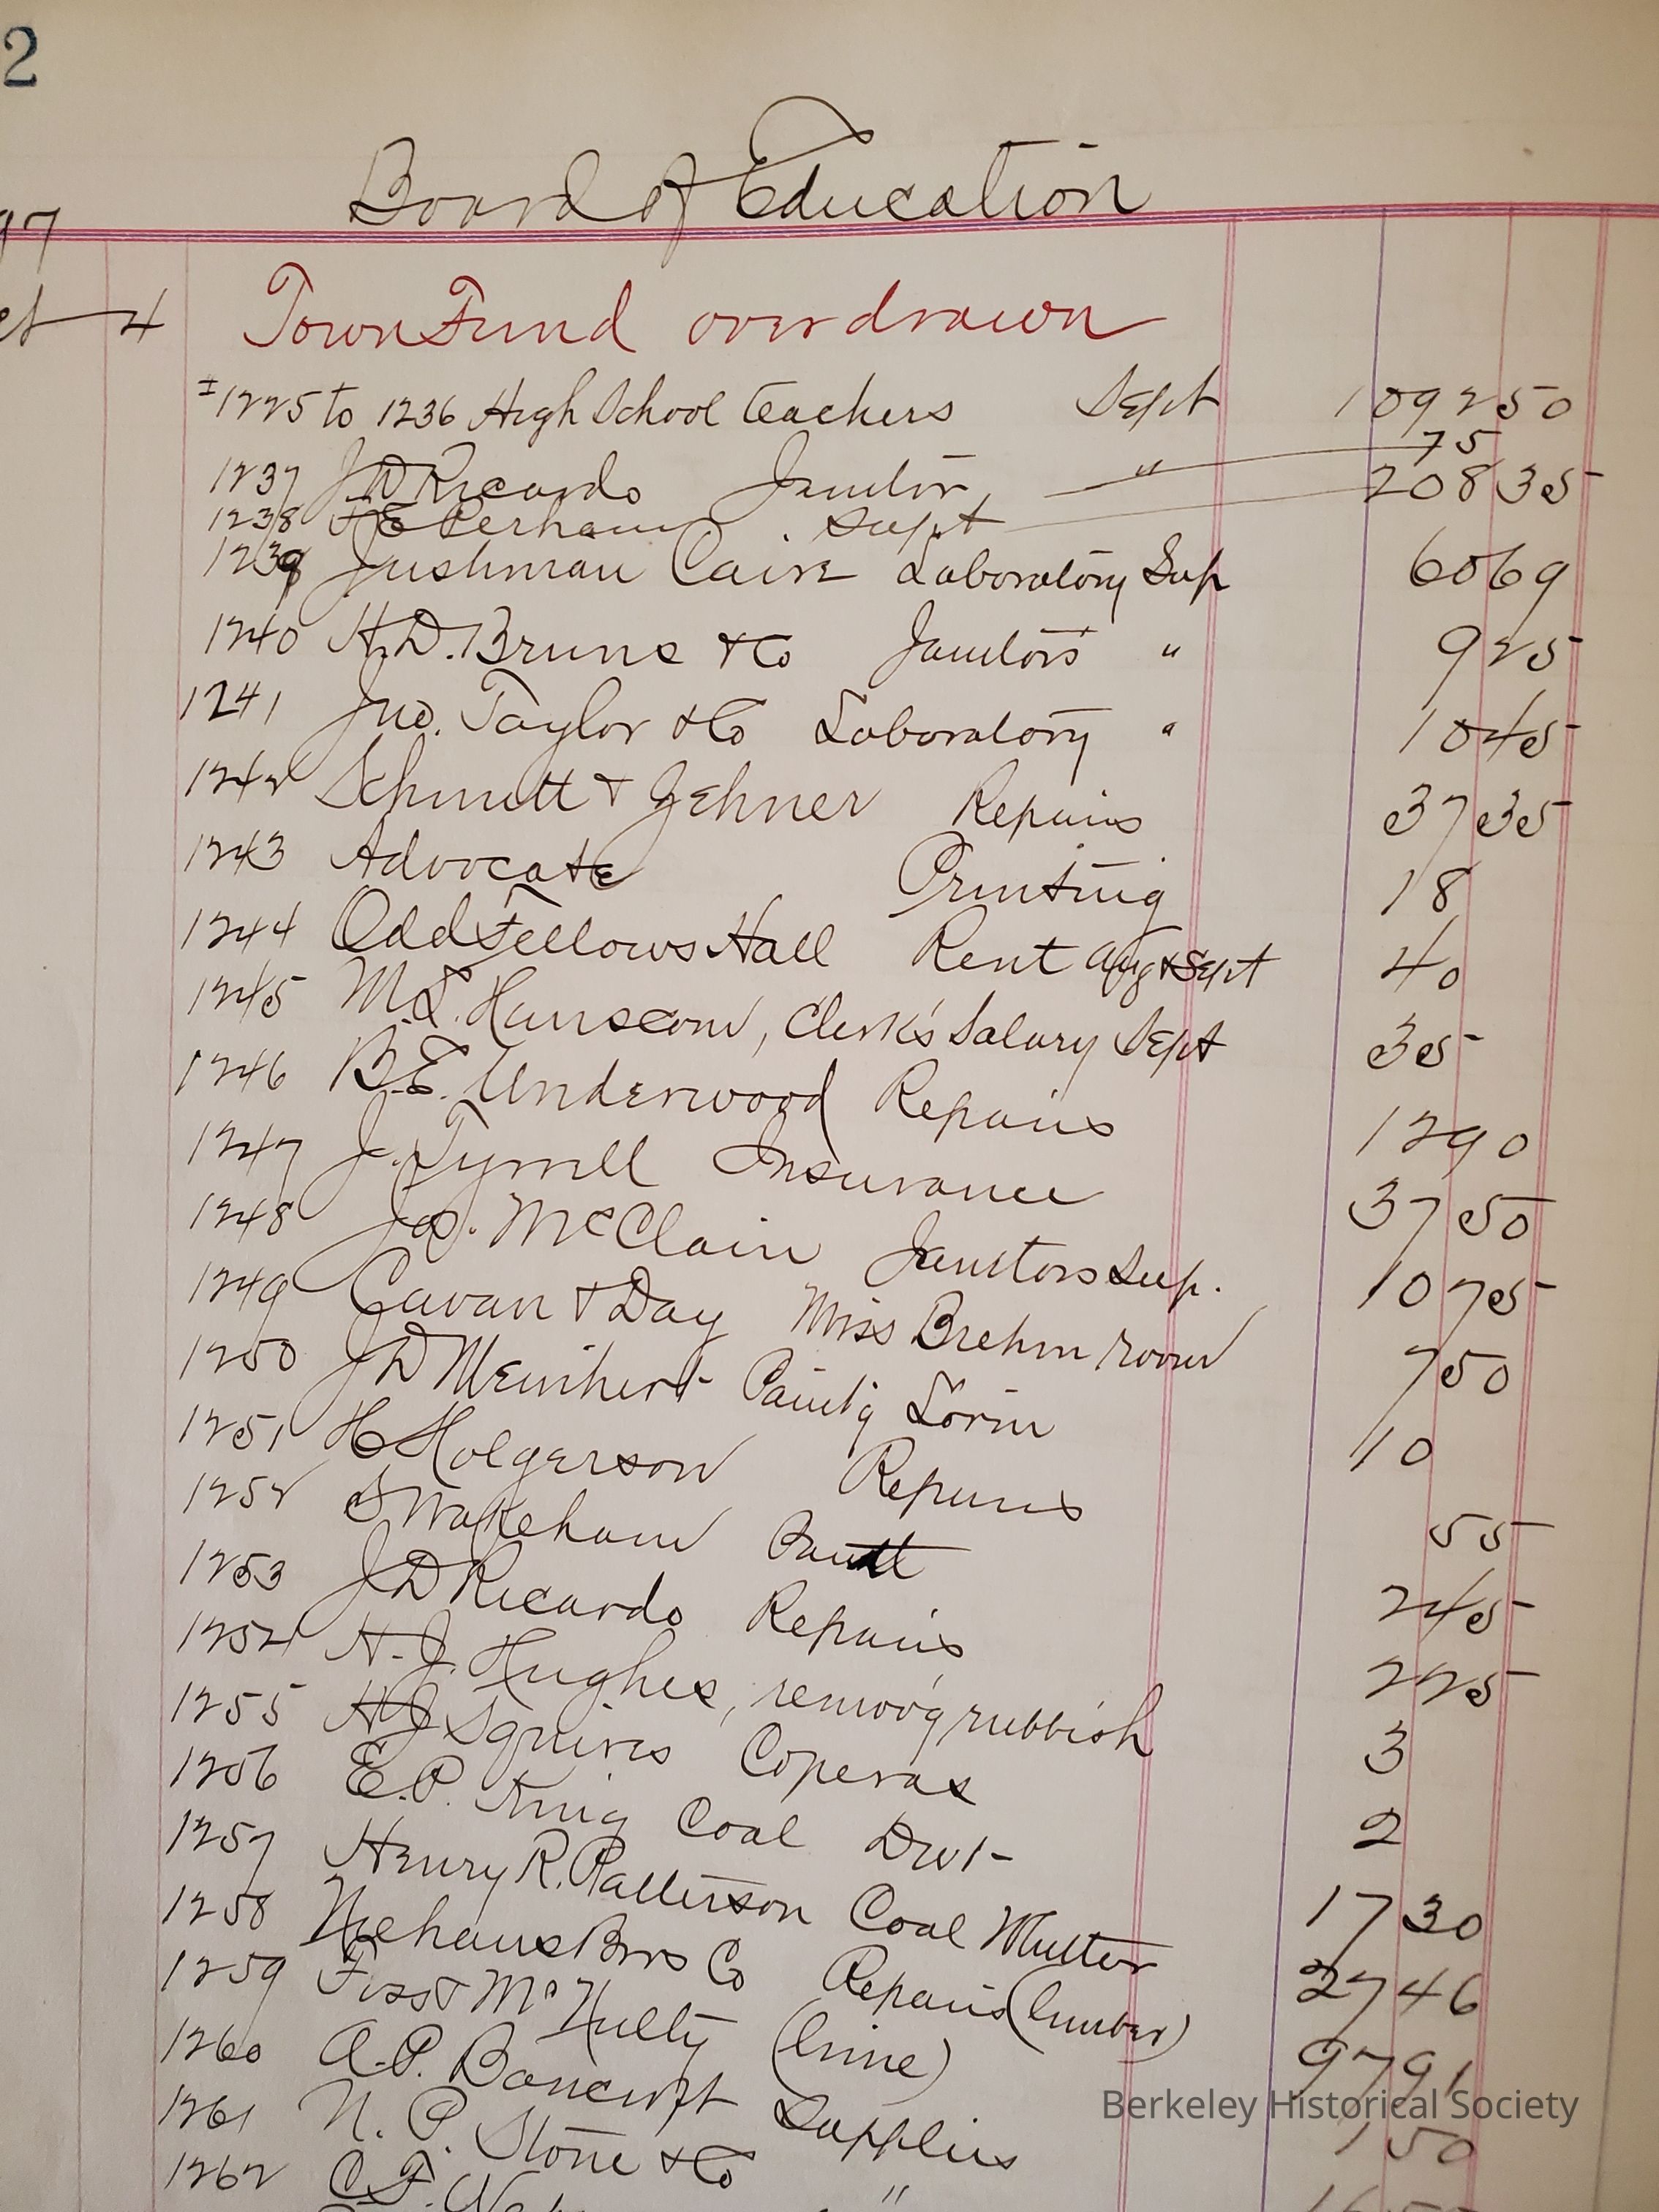 2
Board of Education
97
4 Town Fund overdrawn
#1225 to 1236 High School teachers Sept 1092 50
1237 J D Ricardo Janitor, " 75
1238 Perham Supt 208 35
1239 Jushman Laboratory Sup 60 69
1240 H.D. Bruns & Co Janitors " 9 25
1241 Jno. Taylor & Co Laboratory " 10 45
1242 Schmitt & Repairs 37 35
1243 Advocate Printing 18
1244 Odd Fellows Hall Rent Aug & Sept 40
1245 M.S. Hanscom, Clerk's Salary Sept 35
1246 B.E. Underwood Repairs 12 90
1247 J. Tyrrell Insurance 37 50
1248 McClain Janitors Sup. 10 75
1249 Cavan & Day Miss Brehm room 7 50
1250 J D Meinhert Paint'g Lorin 10
1251 H Holgerson Repairs 55
1252 S Wakeham 2 45
1253 J D Ricardo Repairs 2 25
1254 H. J. Hughes, remov'g rubbish 3
1255 H J Squires Coperas 2
1256 E.P. King Coal Dwt 17 30
1257 Henry R. Patterson Coal Whittier 27 46
1258 Niehaus Bros Co Repairs (lumber) 97 91
1259 Foss & McNulty (lime) 1 50
1260 A.P. Bancroft Supplies
1261 N. P. Stone & Co "
1262
Berkeley Historical Society